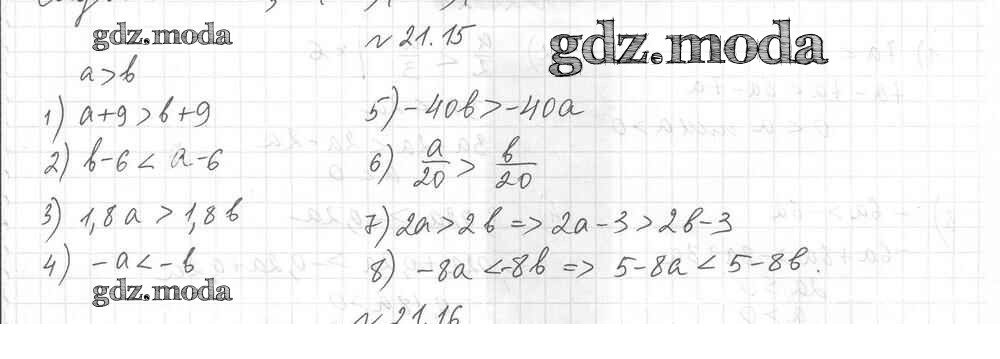 gdz.moda
№ 21.15
gdz.moda
a>b
1) a+9>b+9
2) b-6<a-6
3) 1,8a>1,8b
4) -a<-b
5) -40b>-40a
6) a/20 > b/20
7) 2a>2b => 2a-3>2b-3
8) -8a<-8b => 5-8a<5-8b.
gdz.moda
№ 21.16